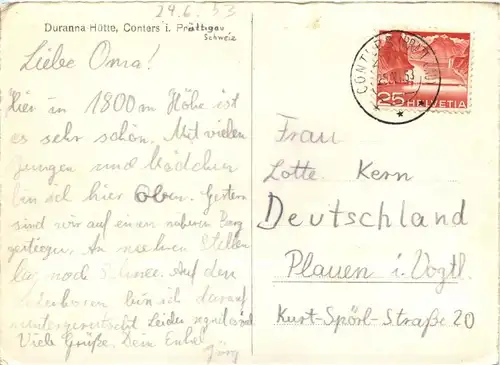 29.6.53
Duranna Hütte, Conters i. Prättigau
Schweiz
Liebe Oma!
Hier in 1800 m Höhe ist
es sehr schön. Mit vielen
Jungen und Mädchen
bin ich hier oben. Gestern
sind wir auf einen näheren Berg
gestiegen. An mehren Stellen
lag noch Schnee. Auf den
bin ich darauf
runtergerutscht. Leider regnet es
Viele Grüße. Dein Enkel
Jörg
CONTERS
53
25 HELVETIA
Frau
Lotte Kern
Deutschland
Plauen i. Vogtl.
Kurt-Spörl-Straße 20